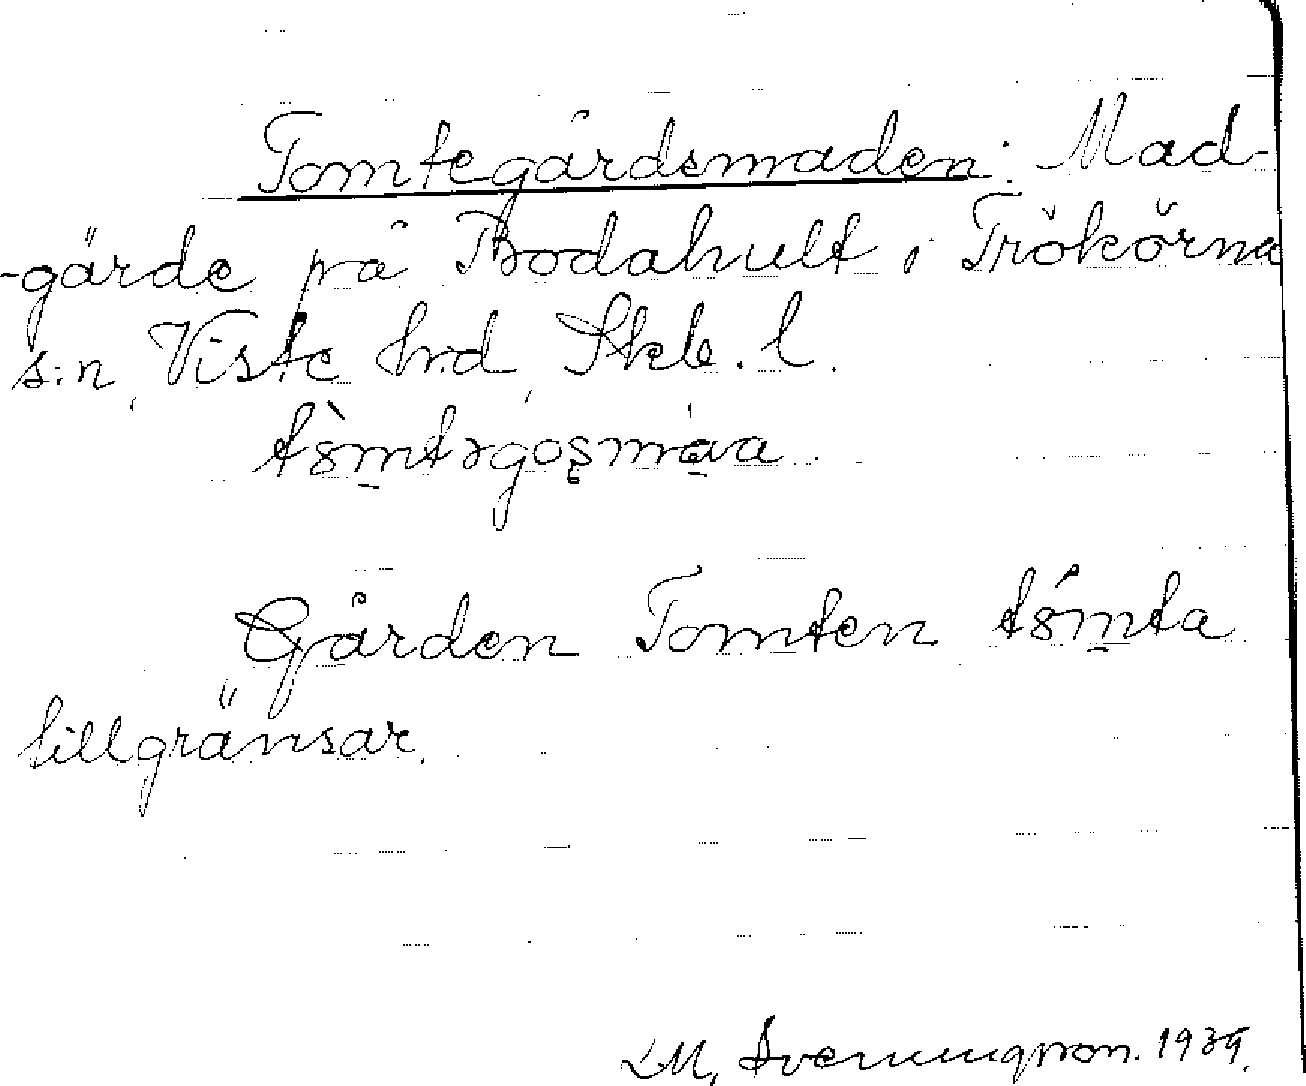 Tomtegårdsmaden: Mad-
-gärde på Bodahult i Trökörna
s:n, Viste hrd, Skb. l.
Gården Tomten
tillgränsar.
LM, Svenungsson. 1939.